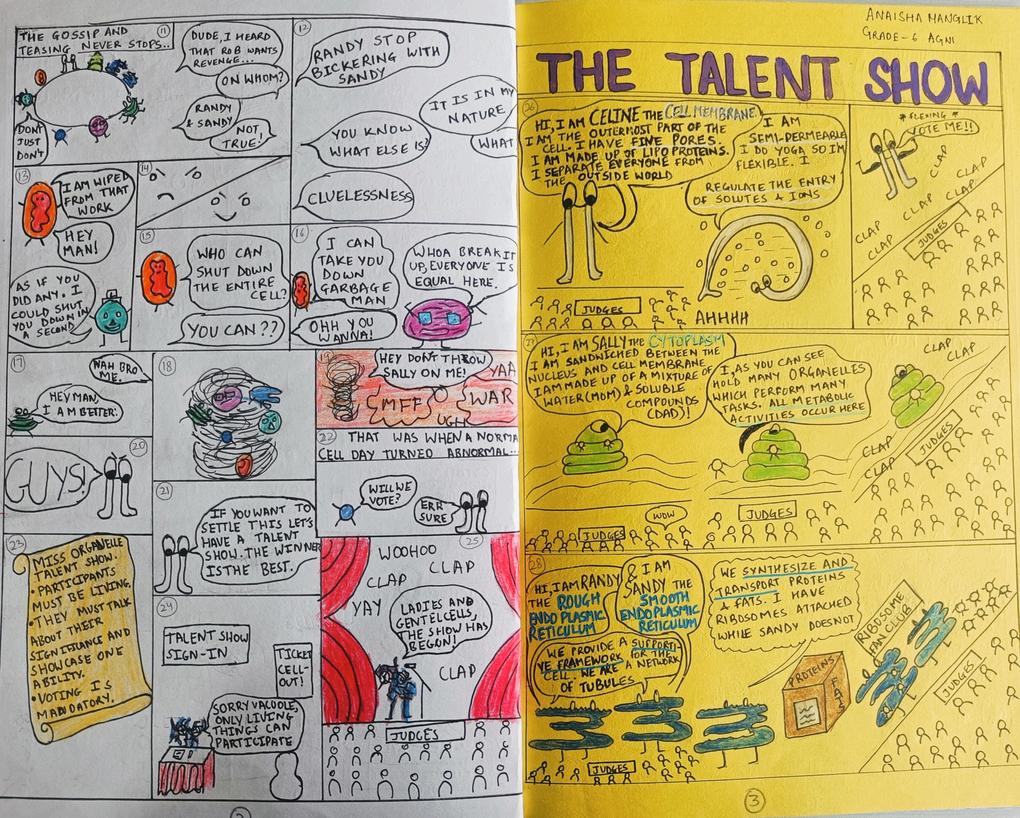 THE GOSSIP AND
TEASING NEVER STOPS..
11
DUDE, I HEARD
THAT ROB WANTS
REVENGE...
ON WHOM?
RANDY
& SANDY
NOT
TRUE!
DON'T
JUST
DON'T
12
RANDY STOP
BICKERING WITH
SANDY
IT IS IN MY
NATURE
YOU KNOW
WHAT ELSE IS?
WHAT
CLUELESSNESS
13
I AM WIPED
FROM THAT
WORK
HEY
MAN!
AS IF YOU
DID ANY. I
COULD SHUT
YOU DOWN IN
A SECOND
14
15
WHO CAN
SHUT DOWN
THE ENTIRE
CELL?
YOU CAN??
16
I CAN
TAKE YOU
DOWN
GARBAGE
MAN
OHH YOU
WANNA!
WHOA BREAK IT
UP, EVERYONE IS
EQUAL HERE.
17
NAH BRO
ME.
HEY MAN,
I AM BETTER.
18
19
HEY DON'T THROW
SALLY ON ME!
MFF
UGH
YAA
WAR
20
GUYS!
21
IF YOU WANT TO
SETTLE THIS LET'S
HAVE A TALENT
SHOW. THE WINNER
IS THE BEST.
22
THAT WAS WHEN A NORMA
CELL DAY TURNED ABNORMAL...
WILL WE
VOTE?
ERR
SURE
23
MISS ORGANELLE
TALENT SHOW.
• PARTICIPANTS
MUST BE LIVING.
• THEY MUST TALK
ABOUT THEIR
SIGNIFICANCE AND
SHOWCASE ONE
ABILITY.
• VOTING IS
MANDATORY.
24
TALENT SHOW
SIGN-IN
TICKET
CELL-
OUT!
SORRY VACUOLE,
ONLY LIVING
THINGS CAN
PARTICIPATE
25
WOOHOO
CLAP
CLAP
YAY
LADIES AND
GENTELCELLS,
THE SHOW HAS
BEGUN!
CLAP
JUDGES
ANAISHA MANGLIK
GRADE-6 AGNI
THE TALENT SHOW
26
HI, I AM CELINE THE CELL MEMBRANE
I AM THE OUTERMOST PART OF THE
CELL. I HAVE FINE PORES.
I AM MADE UP OF LIPO PROTEINS.
I SEPARATE EVERYONE FROM
THE OUTSIDE WORLD
I AM
SEMI-PERMEABLE
I DO YOGA SO I'M
FLEXIBLE. I
REGULATE THE ENTRY
OF SOLUTES & IONS
JUDGES
AHHHH
*FLEXING*
VOTE ME!!
CLAP
CLAP
CLAP
CLAP
CLAP
CLAP
CLAP
JUDGES
27
HI, I AM SALLY THE CYTOPLASM
I AM SANDWICHED BETWEEN THE
NUCLEUS AND CELL MEMBRANE
I AM MADE UP OF A MIXTURE OF
WATER (MOM) & SOLUBLE
COMPOUNDS
(DAD)!
I, AS YOU CAN SEE
HOLD MANY ORGANELLES
WHICH PERFORM MANY
TASKS. ALL METABOLIC
ACTIVITIES OCCUR HERE
WOW
JUDGES
JUDGES
CLAP
CLAP
CLAP
CLAP
JUDGES
28
HI, I AM RANDY
THE ROUGH
ENDOPLASMIC
RETICULUM
& I AM
SANDY THE
SMOOTH
ENDOPLASMIC
RETICULUM
WE PROVIDE A SUPPORTI-
VE FRAMEWORK FOR THE
CELL. WE ARE A NETWORK
OF TUBULES
WE SYNTHESIZE AND
TRANSPORT PROTEINS
& FATS. I HAVE
RIBOSOMES ATTACHED
WHILE SANDY DOES NOT
PROTEINS
FATS
RIBOSOME
FAN CLUB
JUDGES
JUDGES
3